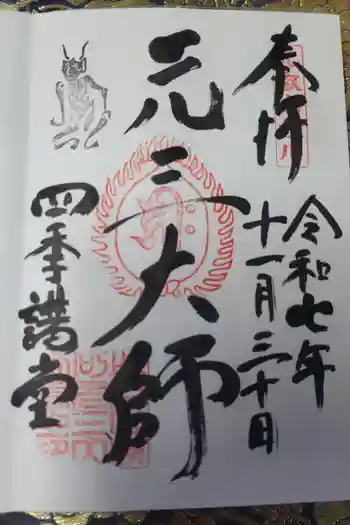 奉拝
令和七年
十一月三十日
元三大師
四季講堂